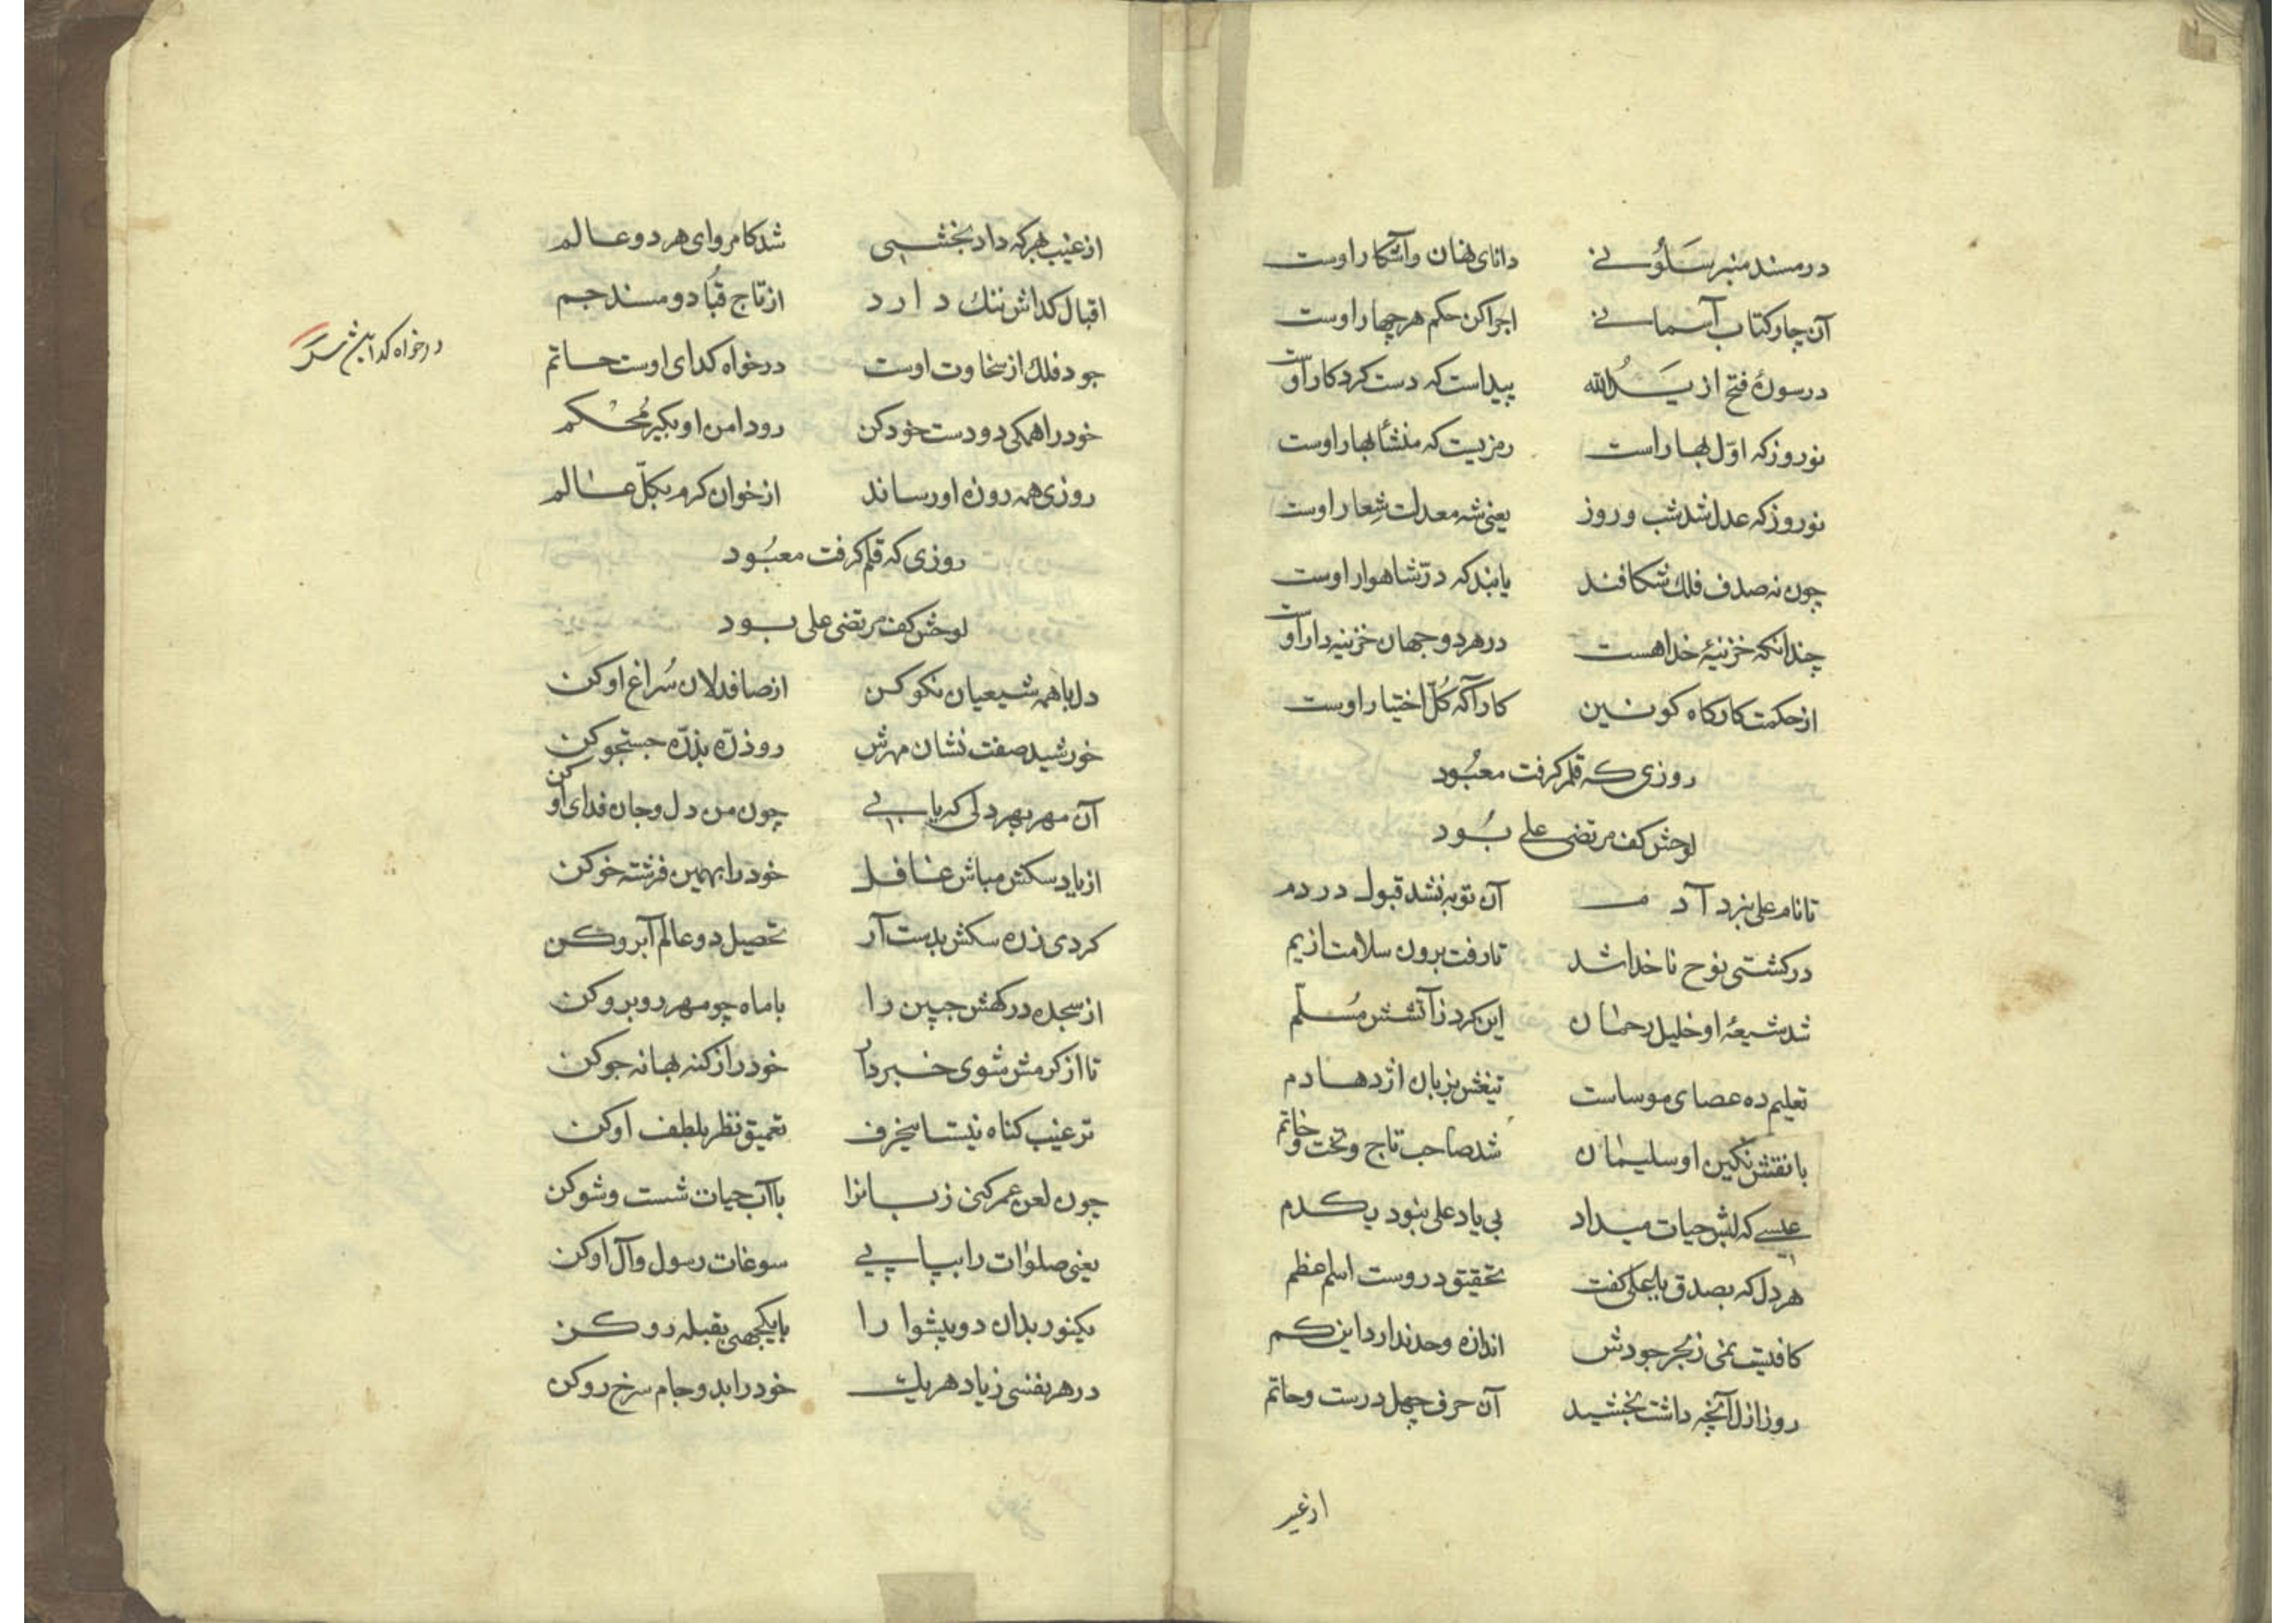 در مسند منبر سَلُونی دانای نهان و آشکار اوست
آن چار کتاب آسمانی اجرا کن حکم هر چهار اوست
در سورهٔ فتح از یَدُ الله پیداست که دست کردکار اوست
نوروز که اوّل بهار است رمزیست که منشأ بهار اوست
نوروز که عدل شد شب و روز یعنی شه معدلت شِعار اوست
چون نه صدف فلک شکافند یابند که درّ شاهوار اوست
چندانکه خزنیهٔ خدا هست در هر دو جهان خزنیه دار اوست
از حکمت کارکاه کونین کارآکه کُلّ اختیار اوست
روزی که قلم کرفت معبُود
لوحش کف مرتضی علی بُود
تا نام علی نبرد آدم آن توبه نشد قبول در دم
در کشتی نوح ناخدا شد تا رفت برون سلامت از یم
شد شیعهٔ او خلیل رحمان این کرد ز آتشش مُسلّم
تعلیم ده عصای موساست تیغش بزبان اژدها دم
با نقش نکین او سلیمان شد صاحب تاج و تخت و خاتم
عیسی که لبش حیات میداد بی یاد علی نبود یکدم
هر دل که بصدق یا علی کفت تحقیق در وست اسم اعظم
کافیست نمی ز بحر جودش اندازه و حد ندارد این کم
روز ازل آنچه داشت بخشید آن حرف چهل درست و حاتم
از غیب
از غیب هر که داد بخشی شد کامروای هر دو عالم
اقبال کداش ننک دارد از تاج قُباد و مسند جم
جود فلک از سخاوت اوست درخواه کدای اوست حاتم
درخواه کدا
خود را همکی دو دست خود کن رو دامن او بکیر مُحکم
روزی همه روزه او رساند از خوان کرم بکلّ عالم
روزی که قلم کرفت معبُود
لوحش کف مرتضی علی بود
دل با همه شیعیان نکو کن از صافدلان سُراغ او کن
خورشید صفت نشان مهرش رو ذرّه بذرّه جستجو کن
آن مهر بهر دلی که یابی چون من دل و جان فدای او کن
از یاد سکش مباش غافل خود را بهمین فرشته خو کن
کردی ز ره سکش بدست آر تحصیل دو عالم آبرو کن
از سجدهٔ درکهش جبین را با ماه چو مهر روبرو کن
تا از کرمش شوی خبردار خود را ز کنه بهانه جو کن
ترغیب کناه نیست این حرف تعمیق نظر بلطف او کن
چون لعن عمر کنی زبانرا با آب حیات شست و شو کن
یعنی صلوات را پیاپی سوغات رسول و آل او کن
یکنور بدان دو پیشوا را با یکجهتی بقبله رو کن
در هر نفسی ز یاد هر یک خود را بدو جام سرخ رو کن